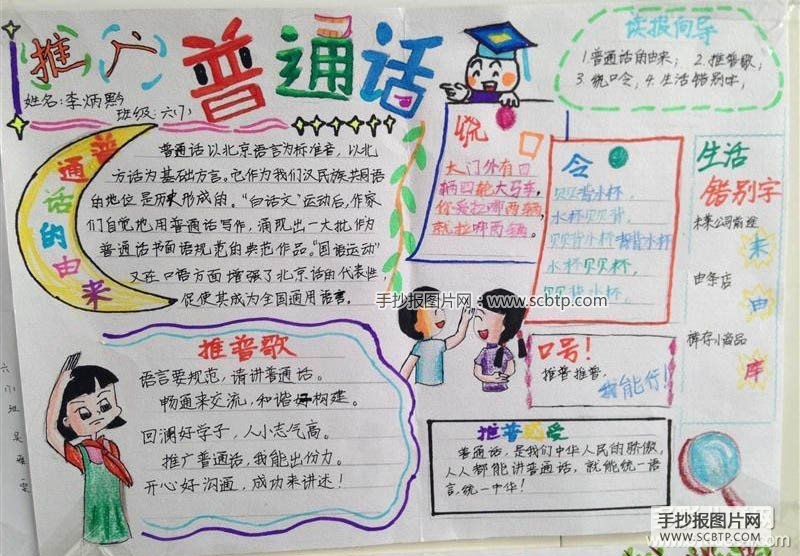 推广普通话
姓名:李炳黔
班级:六(1)
读报向导
1.普通话的由来; 2.推普歌;
3.绕口令; 4.生活错别字;
普通话的由来
普通话以北京语言为标准音，以北
方话为基础方言。它作为我们汉民族共同语
的地位是历史形成的。“白话文”运动后，作家
们自觉地用普通话写作，涌现出一大批作为
普通话书面语规范的典范作品。“国语运动”
又在口语方面增强了北京话的代表性，
促使其成为全国通用语言。
绕口
大门外有四
辆四轮大马车，
你爱拉哪两辆，
就拉哪两辆。
令
贝贝背水杯，
水杯贝贝背，
贝贝背水杯背水杯
水杯贝贝杯，
贝贝背水杯。
生活
错别字
未莱公司前途
来
由条店
由
裤存小商品
库
手抄报图片网 www.scbtp.com
推普歌
语言要规范，请讲普通话。
畅通来交流，和谐构建。
回澜好学子，人小志气高。
推广普通话，我能出份力。
开心好沟通，成功来讲述！
口号！
推普推普，
我能行！
推普
普通话，是我们中华人民的骄傲，
人人都能讲普通话，就能统一语
言，统一中华！
手抄报图片网
WWW.SCBTP.COM